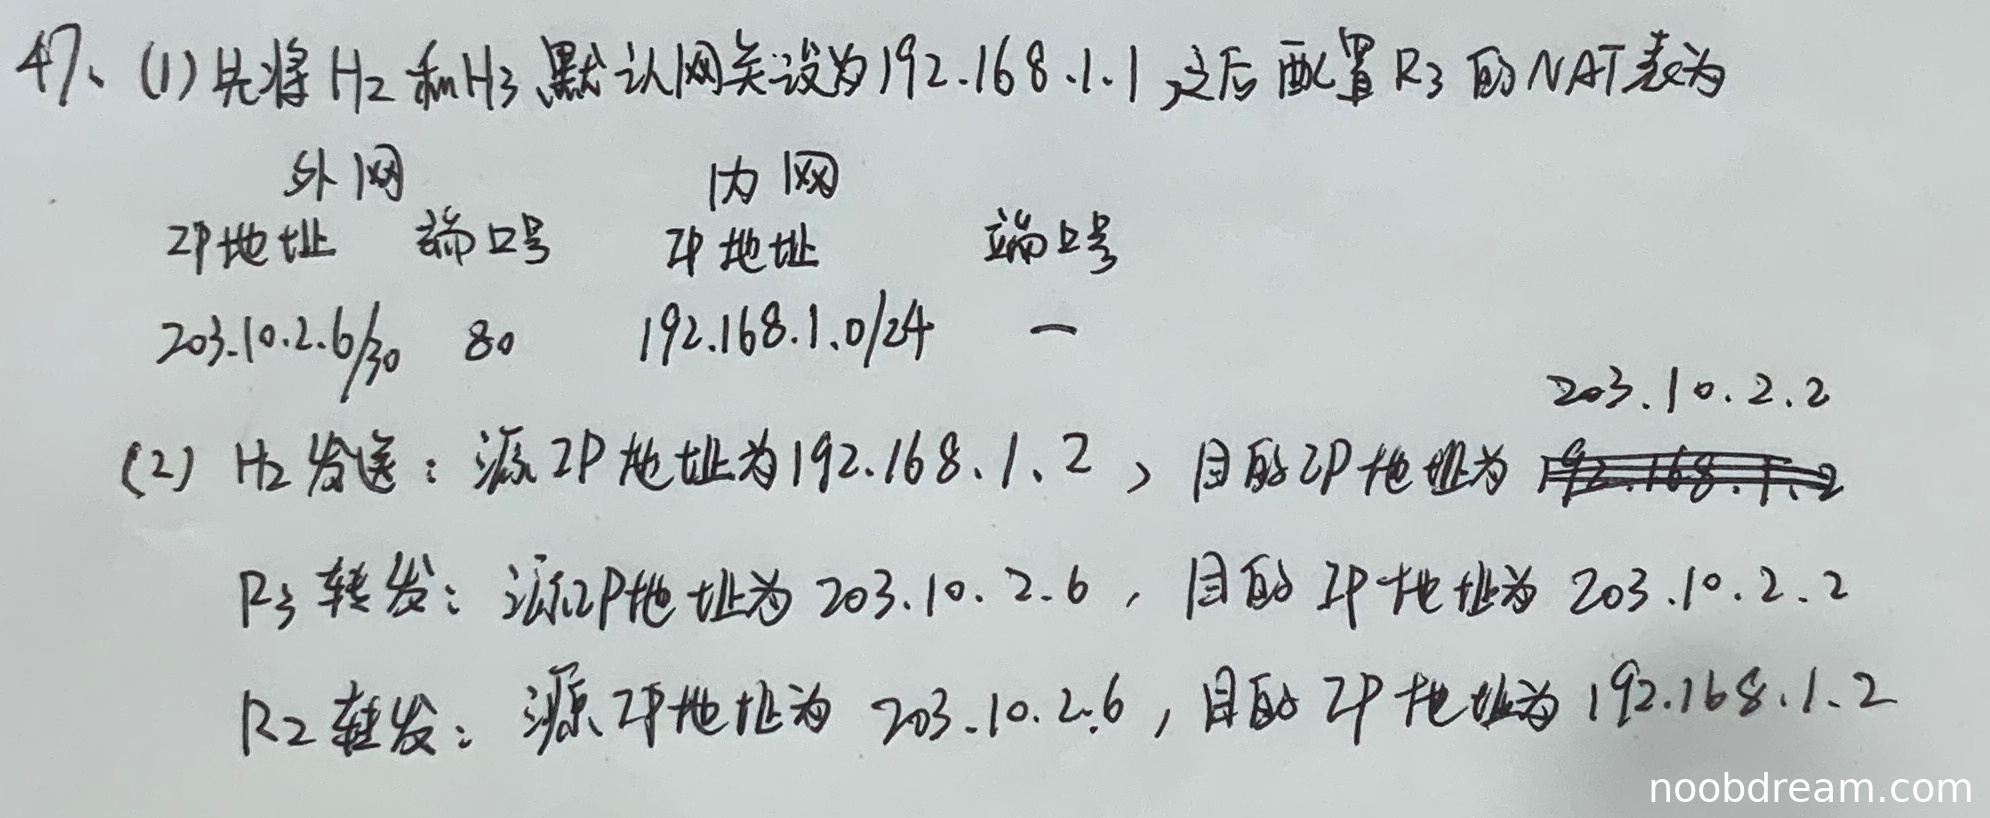 47、(1)先将H2和H3默认网关设为192.168.1.1,之后配置R3的NAT表为
外网 内网
IP地址 端口号 IP地址 端口号
203.10.2.6/30 80 192.168.1.0/24 一
203.10.2.2
(2) H2发送：源IP地址为192.168.1.2，目的IP地址为 192.168.1.2
R3转发：源IP地址为203.10.2.6，目的IP地址为203.10.2.2
R2转发：源IP地址为203.10.2.6，目的IP地址为192.168.1.2
noobdream.com